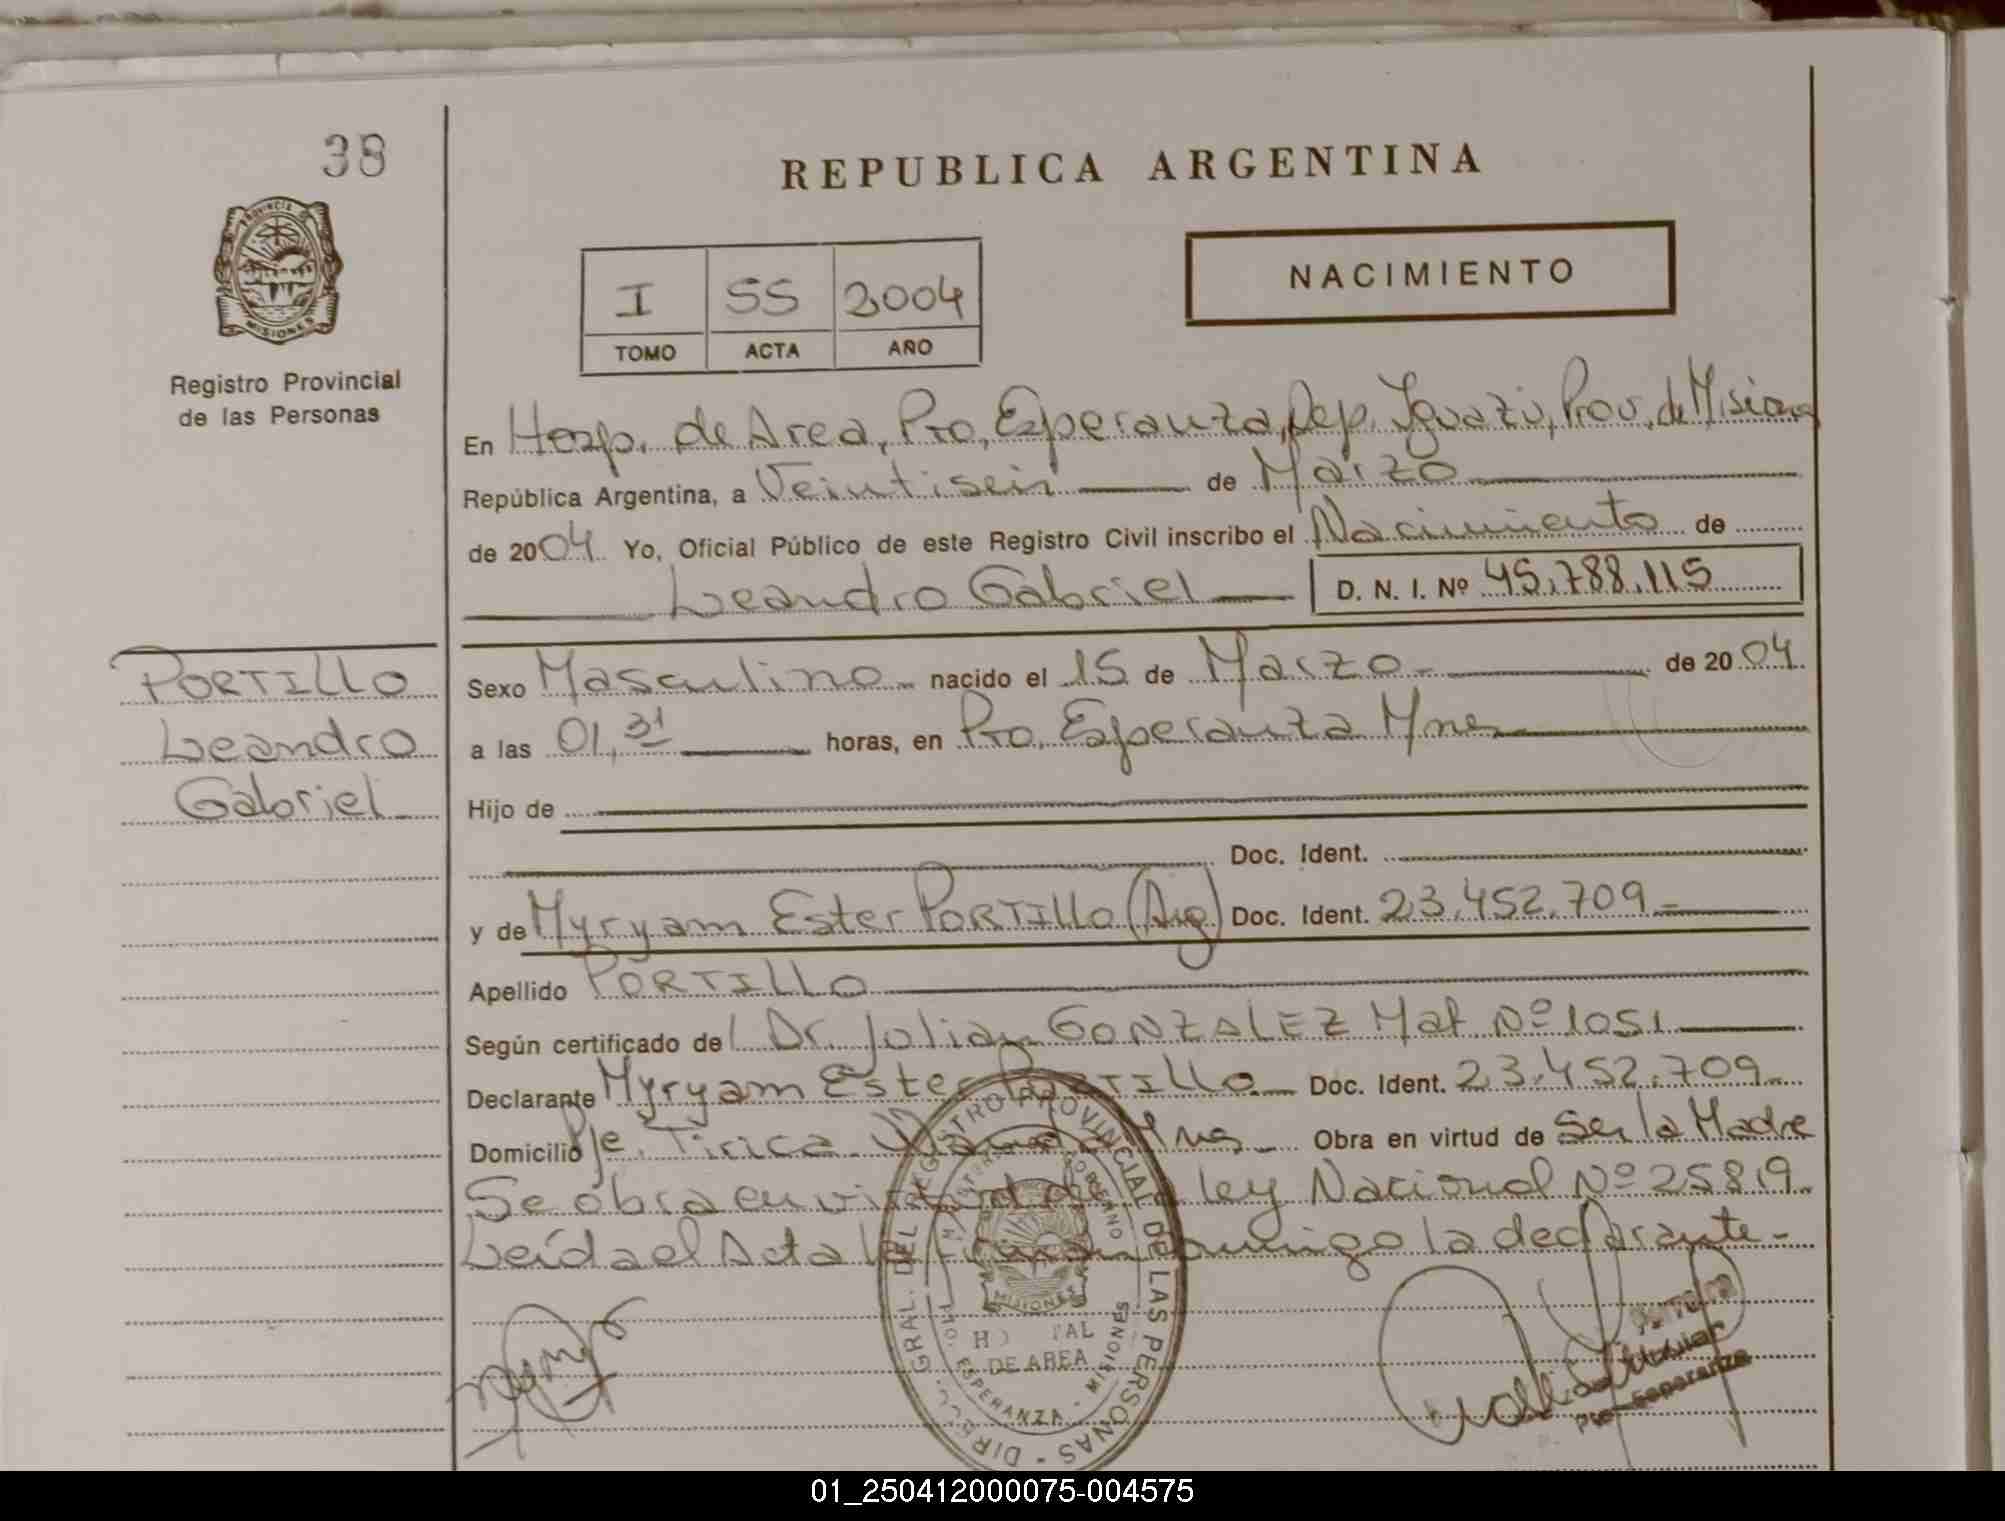 38
REPUBLICA ARGENTINA
PROVINCIA DE
MISIONES
Registro Provincial
de las Personas
NACIMIENTO
I 55 2004
TOMO ACTA AÑO
En Hosp. de Area, Pto. Esperanza, Dep. Iguazú, Prov. de Misiones
República Argentina, a Veintiseis de Marzo
de 2004 Yo, Oficial Público de este Registro Civil inscribo el Nacimiento de
Leandro Gabriel D. N. I. Nº 45.788.115
PORTILLO
Leandro
Gabriel
Sexo Masculino nacido el 15 de Marzo de 2004
a las 01,31 horas, en Pto. Esperanza Mnes
Hijo de
y Doc. Ident.
y de Myryam Ester PORTILLO (Arg) Doc. Ident. 23.452.709
Apellido PORTILLO
Según certificado del Dr. Julian GONZALEZ Mat Nº 1051
Declarante Myryam Ester PORTILLO Doc. Ident. 23.452.709
Domicilio Pje. Tirica Wanda Mnes Obra en virtud de Ser la Madre
Se obra en virtud de la ley Nacional Nº 25819
Leída el Acta la firman conmigo la declarante
DIRECC. GRAL. DEL REGISTRO PROVINCIAL DE LAS PERSONAS
MISIONES
DE AREA
ESPERANZA - MISIONES
Titular
Pto. Esperanza
01_250412000075-004575